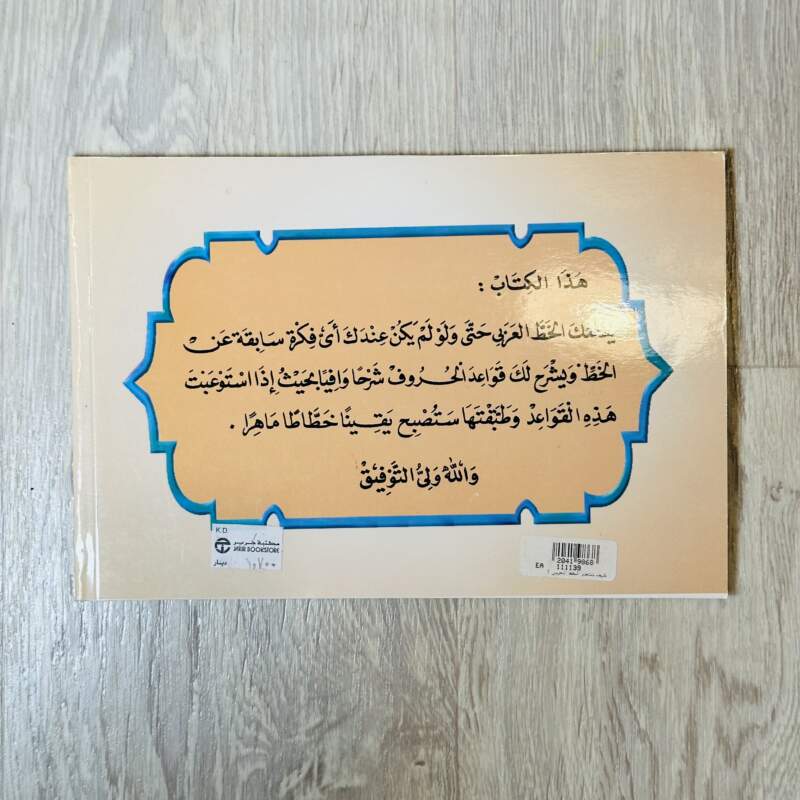 هَذَا الكِتَابْ :
يُعَلِّمُكَ الخَطَّ العَرَبي حَتَّى وَلَوْ لَمْ يَكُنْ عِنْدَكَ أىّ فِكْرَة سَابِقَة عَنْ
الخَطّ وَيشْرَح لَكَ قَوَاعِدَ الحُرُوفْ شَرْحًا وَافِيًا بحَيْثُ إذَا اسْتَوْعَبْتَ
هَذِهِ القَوَاعِدْ وَطَبَقْتَهَا سَتُصْبِح يَقِينًا خَطَّاطًا مَاهِرًا .
وَاللَّهُ وَلِيُّ التَّوْفِيقْ
K.D.
مكتبة جرير
JARIR BOOKSTORE
دينار ١,٧٠٠
2041 9868
EA 111139